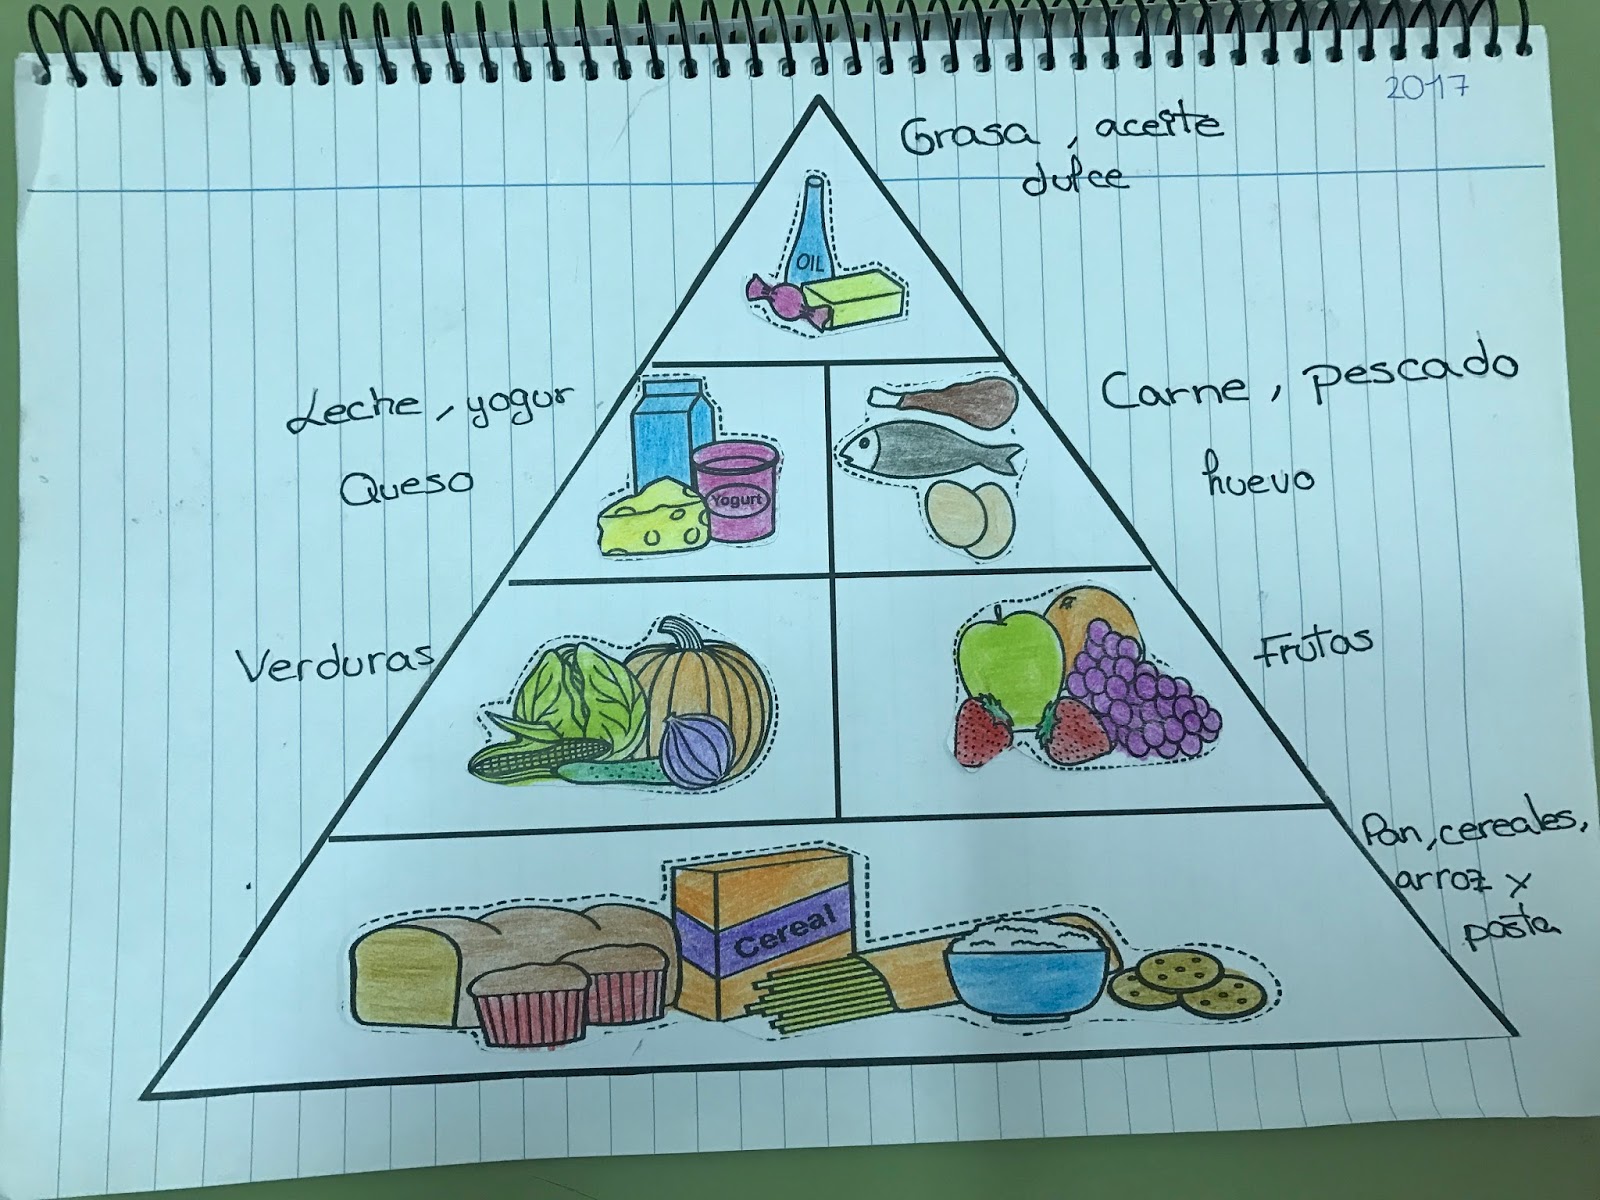 2017
Grasa, aceite
dulce
OIL
Leche, yogur
Queso
Carne, pescado
huevo
Yogurt
Verduras
Frutas
Pan, cereales,
arroz y
pasta
Cereal